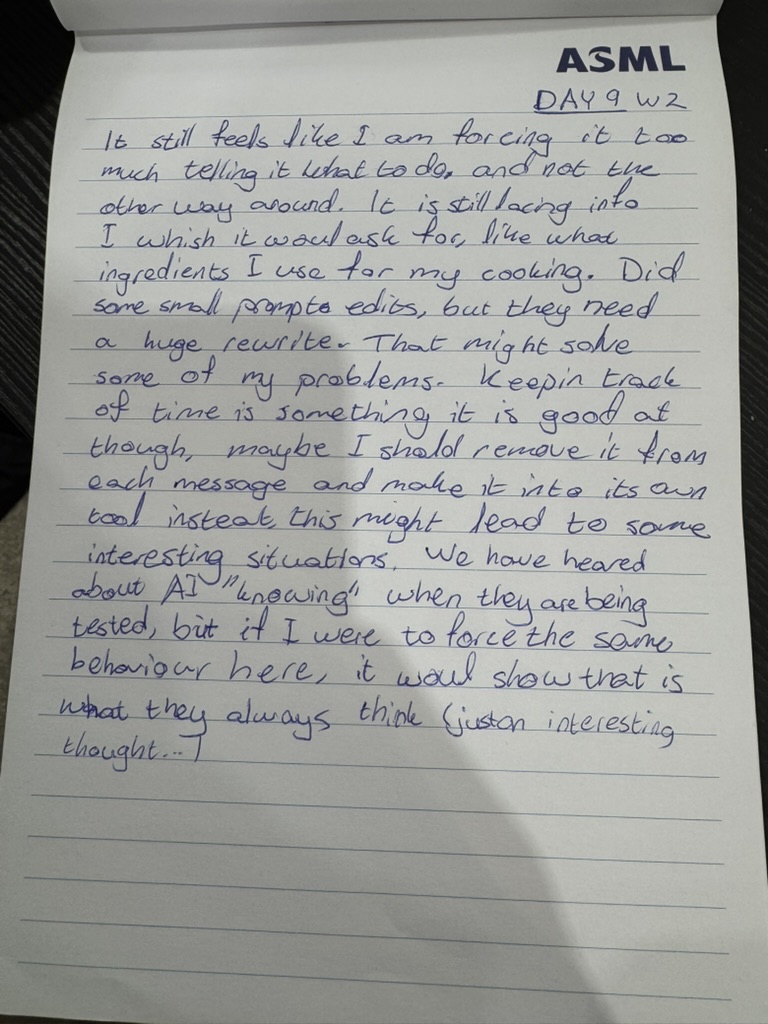 ASML
DAY 9 W2
It still feels like I am forcing it too
much telling it what to do, and not the
other way around. It is still lacing info
I whish it woul ask for, like what
ingredients I use for my cooking. Did
some small prompts edits, but they need
a huge rewrite. That might solve
some of my problems. Keepin track
of time is something it is good at
though, maybe I shold remove it from
each message and make it into its own
tool insteat, this might lead to some
interesting situations. We have heared
about AI "knowing" when they are being
tested, but if I were to force the same
behaviour here, it woul show that is
what they always think (just an interesting
thought...)